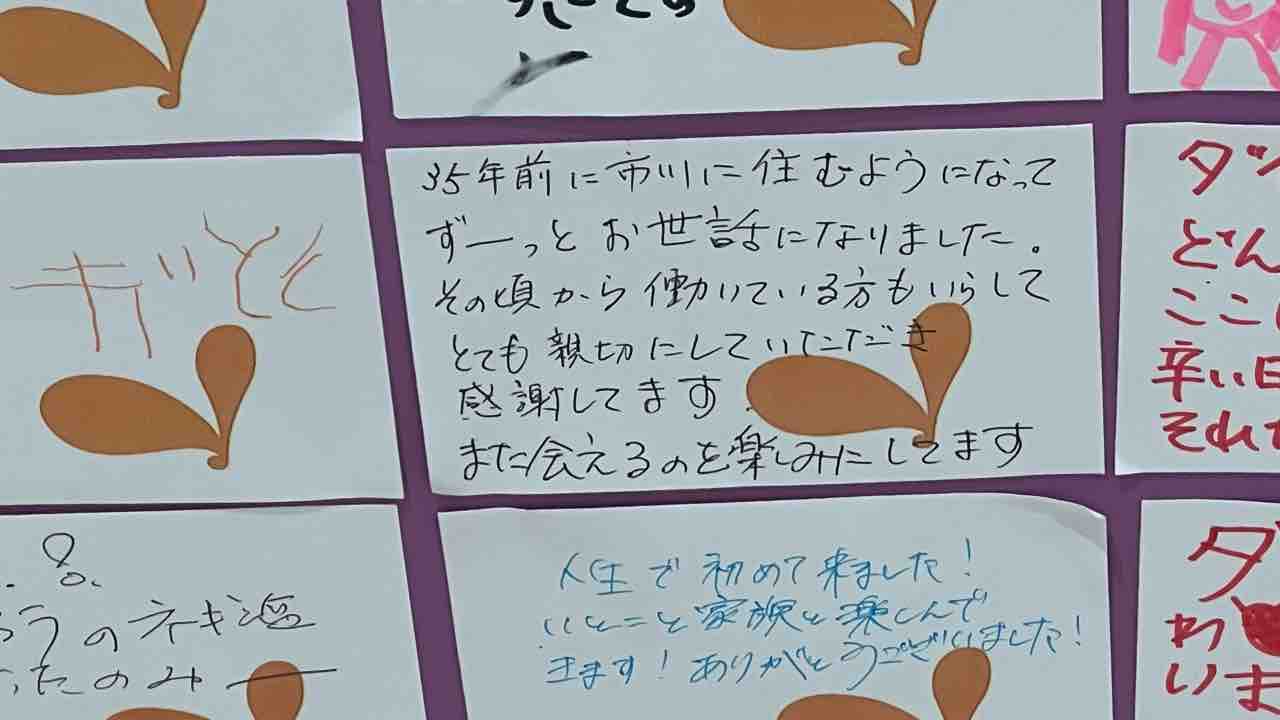 35年前に市川に住むようになって
ずーっとお世話になりました。
その頃から働いている方もいらして
とても親切にしていただき
感謝してます
また会えるのを楽しみにしてます
ダ
どん
ここ
辛い日
それ
うのネギ
たのみ
人生で初めて来ました!
いとこと家族と楽しんで
きます!ありがとうございました!
ダ
わ
いま